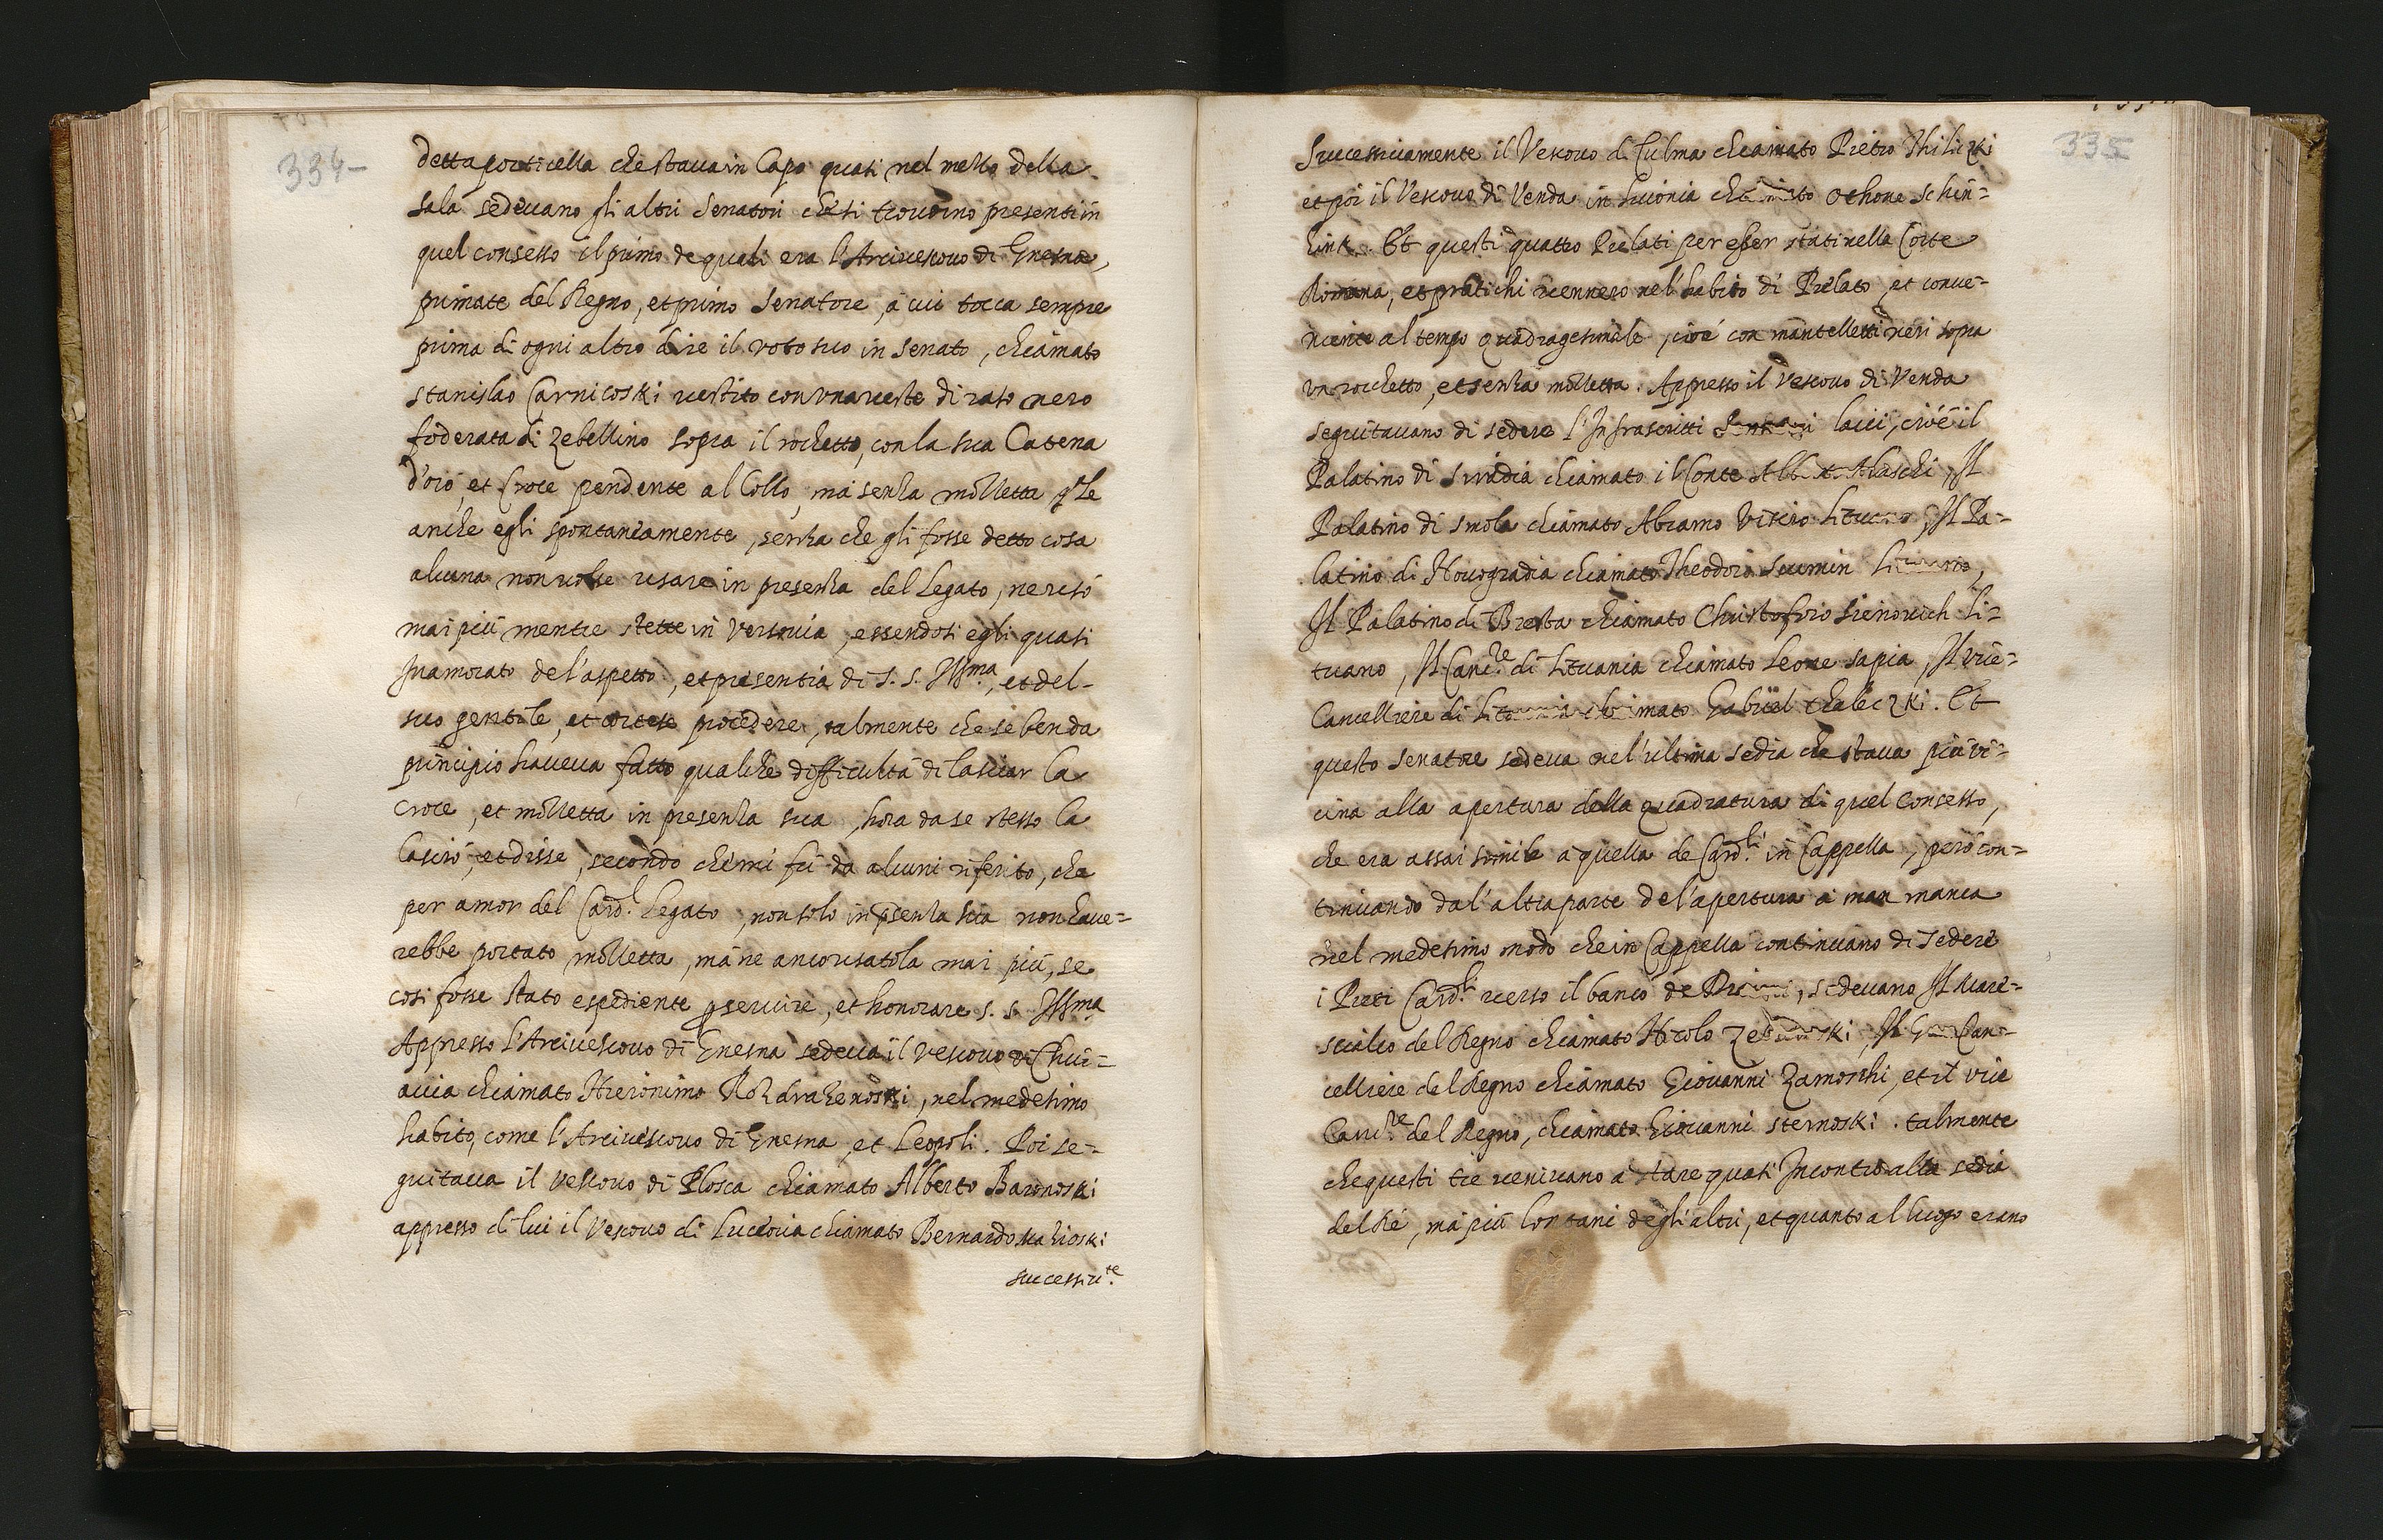 334
detta porticella che staua in Capo quasi nel mezzo della
sala sedeuano gli altri Senatori che si trouorno presenti in
quel consesso il primo de quali era l'Arciuescouo di Gnesna,
primate del Regno, et primo Senatore, à cui tocca sempre
prima di ogni altro dire il voto suo in Senato, chiamato
Stanislao Carnicoski uestito con una ueste di raso nero
foderata di Zebellino sopra il rochetto, con la sua Catena
d'oro, et Croce pendente al Collo, mà senza mozzetta q.le
anche egli spontaneamente, senza che gli fosse detto cosa
alcuna non uolse usare in presenza del Legato, ne usò
mai più mentre stette in Versouia, essendosi egli quasi
Inamorato de l'aspetto, et presentia di S. S. Ill.ma, et del
suo gentile, et cortese procedere, talmente che se ben da
principio haueua fatto qualche difficultà di lasciar la
Croce, et mozzetta in presenza sua, hora da se stesso la
lasciò, et disse, secondo che mi fù da alcuni riferito, che
per amor del Card.l Legato, non solo in p̄senza sua non haue=
rebbe portato mozzetta, mà ne ancor usatola mai più, se
cosi fosse stato espediente ꝑ seruire, et honorare S. S. Ill.ma
Appresso l'Arciuescouo di Gnesna sedeua il Vescouo di Chui=
auia chiamato Hieronimo Rozdrazenoski, nel medesimo
habito, come l'Arciuescouo di Gnesna, et Leopoli. Poi se=
guitaua il Vescouo di Plosca chiamato Alberto Baronoski
appresso di lui il Vescouo di Luceoria chiamato Bernardo
successiu.te
335
Successiuamente il Vescouo di Culma chiamato Pietro Thiliczki
et poi il Vescouo di Venda in Liuonia chiamato Othone Schin=
kink. Et questi quattro Prelati per esser stati nella Corte
Romana, et pratichi uennero nel habito di Prelato, et conue=
niente al tempo quadragesimale, cioè con mantelletti neri sopra
un rocchetto, et senza mozzetta. Appresso il Vescouo di Venda
seguitauano di sedere l'Infrascritti Senatori laici, cioè il
Palatino di Siradia chiamato il Conte Alb.to Alaschi, Il
Palatino di Smola chiamato Abramo Lituano, Il Pa=
latino di Nouogradia chiamato Theodoro Scumin Lituano,
Il Palatino di Bresta chiamato Christoforo Sienouich Li=
tuano, Il Canc.re di Lituania chiamato Leone Sapia, Il Vice=
Cancelliere di Lituania chiamato Gabriel Chaleczki. Et
questo Senatore sedeua nel'ultima sedia che staua più ui=
cina alla apertura della quadratura di quel Consesso,
che era assai simile à quella de Card.li in Cappella, però con=
tinuando dal'altra parte de l'apertura à man manca
nel medesimo modo che in Cappella continuano di sedere
i Preti Card.li uerso il banco de Diaconi, sedeuano Il Mare=
scialco del Regno chiamato Nicolo Zebridouski, Il Gran Can=
celliere del Regno chiamato Giouanni Zamoschi, et il Vice
Canc.re del Regno, chiamato Giouanni Sternoski. talmente
che questi tre ueniuano à stare quasi Incontro alla sedia
del Rè, mà più lontani degl'altri, et quanto al luogo erano